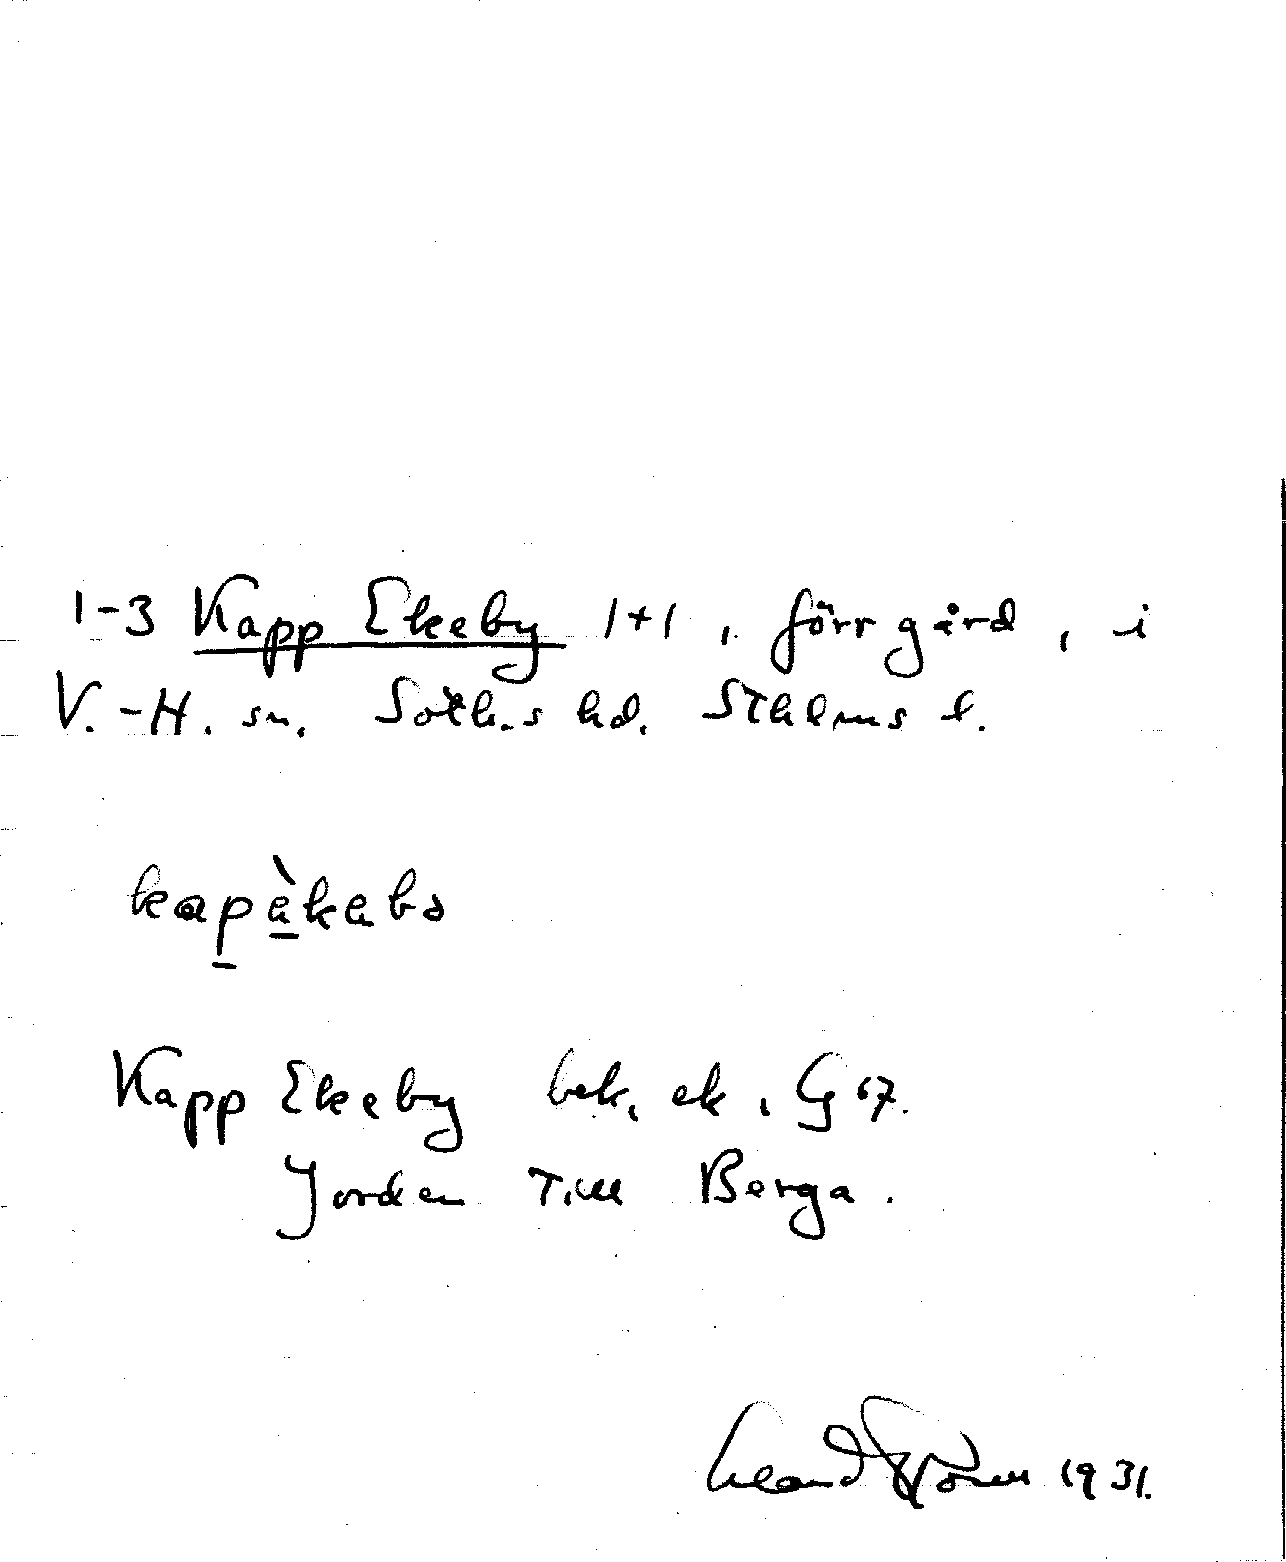 1-3 Kapp Ekeby 1+1, förr gård, i
V.-H. sn. Soth.s hd. Sthlms l.
kapèkabo
Kapp Ekeby bek. ek. G 67.
Jorden till Berga.
1931.